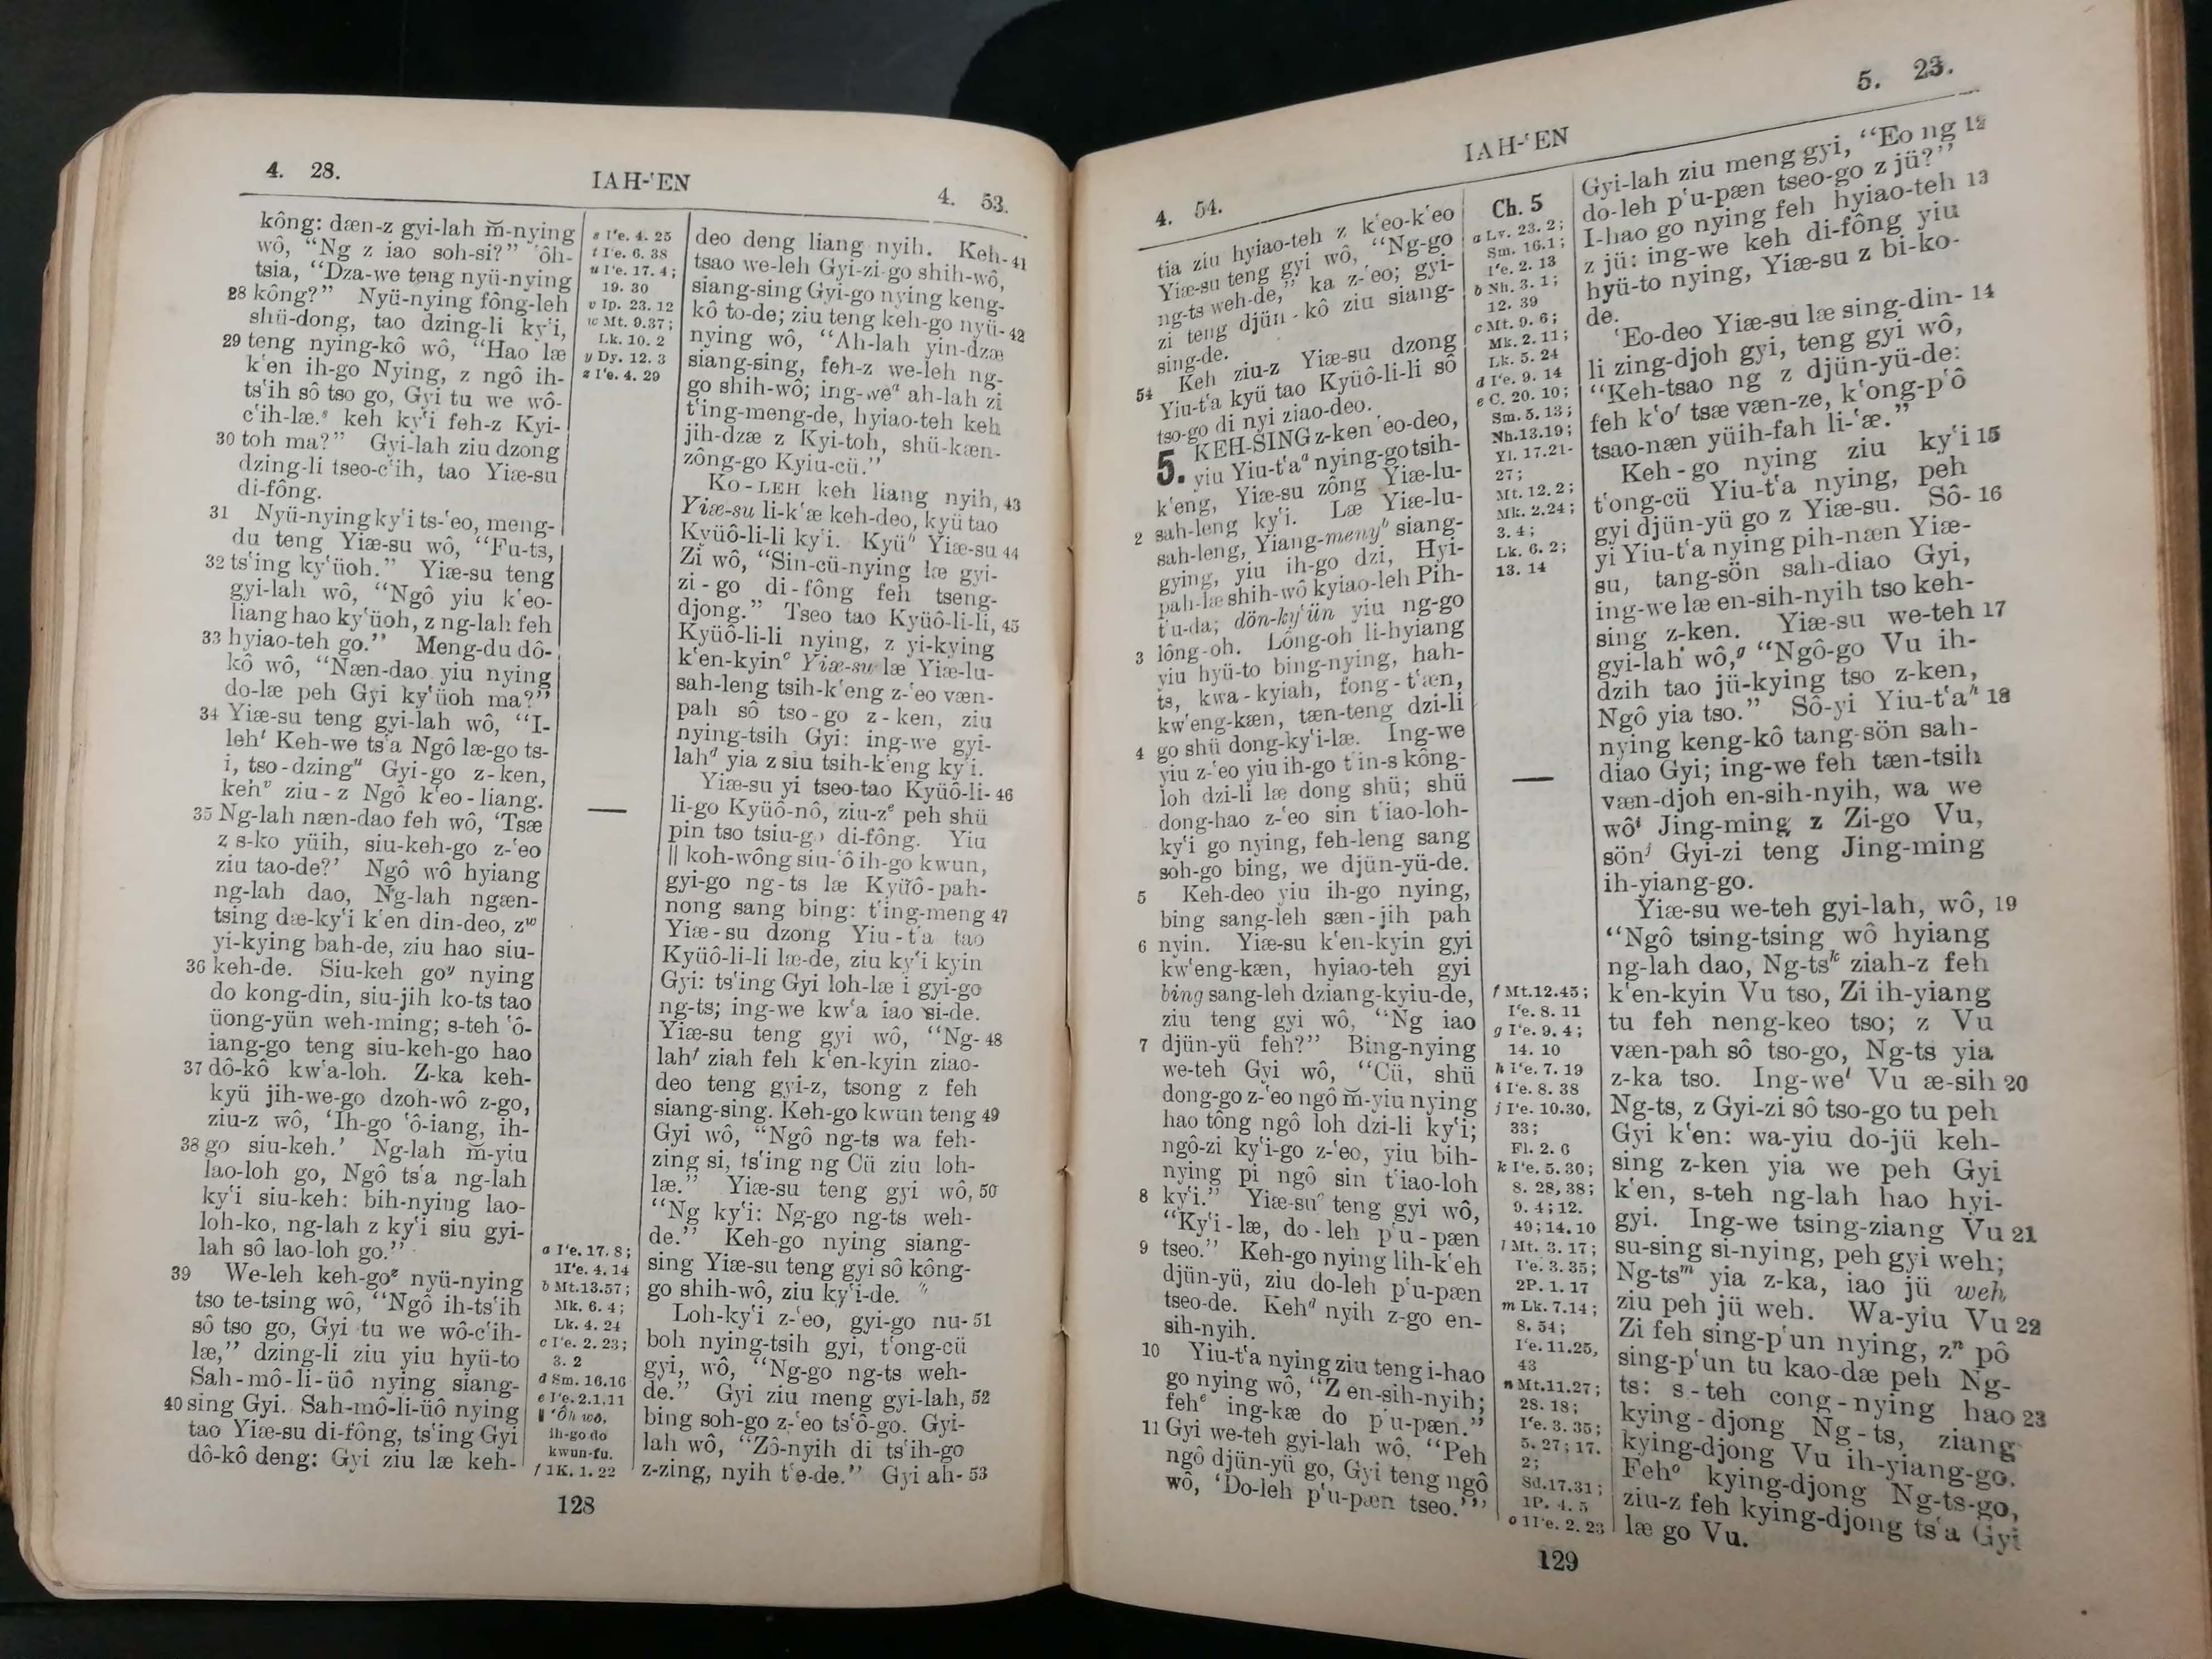 4. 28.
IAH-‘EN
4. 53.
kông: dæn-z gyi-lah m̆-nying
wô, “Ng z iao soh-si?” ‘ôh-
tsia, “Dza-we teng nyü-nying
28 kông?” Nyü-nying fông-leh
shü-dong, tao dzing-li ky‘i,
29 teng nying-kô wô, “Hao læ
k‘en ih-go Nying, z ngô ih-
ts‘ih sô tso go, Gyi tu we wô-
c‘ih-læ.ˢ keh ky‘i feh-z Kyi-
30 toh ma?” Gyi-lah ziu dzong
dzing-li tseo-c‘ih, tao Yiæ-su
di-fông.
31 Nyü-nying ky‘i ts-‘eo, meng-
du teng Yiæ-su wô, “Fu-ts,
32 ts‘ing ky‘üoh.” Yiæ-su teng
gyi-lah wô, “Ngô yiu k‘eo-
liang hao ky‘üoh, z ng-lah feh
33 hyiao-teh go.” Meng-du dô-
kô wô, “Næn-dao yiu nying
do-læ peh Gyi ky‘üoh ma?”
34 Yiæ-su teng gyi-lah wô, “I-
lehᵗ Keh-we ts‘a Ngô læ-go ts-
i, tso-dzingᵘ Gyi-go z-ken,
kehᵛ ziu-z Ngô k‘eo-liang.
35 Ng-lah næn-dao feh wô, ‘Tsæ
z s-ko yüih, siu-keh-go z-‘eo
ziu tao-de?’ Ngô wô hyiang
ng-lah dao, Ng-lah ngæn-
tsing dæ-ky‘i k‘en din-deo, zʷ
yi-kying bah-de, ziu hao siu-
36 keh-de. Siu-keh goʸ nying
do kong-din, siu-jih ko-ts tao
üong-yün weh-ming; s-teh ‘ô-
iang-go teng siu-keh-go hao
37 dô-kô kw‘a-loh. Z-ka keh-
kyü jih-we-go dzoh-wô z-go,
ziu-z wô, ‘Ih-go ‘ô-iang, ih-
38 go siu-keh.’ Ng-lah m̆-yiu
lao-loh go, Ngô ts‘a ng-lah
ky‘i siu-keh: bih-nying lao-
loh-ko, ng-lah z ky‘i siu gyi-
lah sô lao-loh go.”
39 We-leh keh-goᶻ nyü-nying
tso te-tsing wô, “Ngô ih-ts‘ih
sô tso go, Gyi tu we wô-c‘ih-
læ,” dzing-li ziu yiu hyü-to
Sah-mô-li-üô nying siang-
40 sing Gyi. Sah-mô-li-üô nying
tao Yiæ-su di-fông, ts‘ing Gyi
dô-kô deng: Gyi ziu læ keh-
s I‘e. 4. 25
t I‘e. 6. 38
u I‘e. 17. 4;
19. 30
v Ip. 23. 12
w Mt. 9.37;
Lk. 10. 2
y Dy. 12. 3
z I‘e. 4. 29
a I‘e. 17. 8;
1I‘e. 4. 14
b Mt.13.57;
Mk. 6. 4;
Lk. 4. 24
c I‘e. 2. 23;
3. 2
d Sm. 16.16
e I‘e.2.1,11
‖ ‘Ôh wô,
ih-go do
kwun-fu.
f 1K. 1. 22
deo deng liang nyih. Keh- 41
tsao we-leh Gyi-zi-go shih-wô,
siang-sing Gyi-go nying keng-
kô to-de; ziu teng keh-go nyü- 42
nying wô, “Ah-lah yin-dzæ
siang-sing, feh-z we-leh ng-
go shih-wô; ing-weᵃ ah-lah zi
t‘ing-meng-de, hyiao-teh keh
jih-dzæ z Kyi-toh, shü-kæn-
zông-go Kyiu-cü.”
KO-LEH keh liang nyih, 43
Yiæ-su li-k‘æ keh-deo, kyü tao
Kyüô-li-li ky‘i. Kyüᵇ Yiæ-su 44
Zi wô, “Sin-cü-nying læ gyi-
zi-go di-fông feh tseng-
djong.” Tseo tao Kyüô-li-li, 45
Kyüô-li-li nying, z yi-kying
k‘en-kyinᶜ Yiæ-su læ Yiæ-lu-
sah-leng tsih-k‘eng z-‘eo væn-
pah sô tso-go z-ken, ziu
nying-tsih Gyi: ing-we gyi-
lahᵈ yia z siu tsih-k‘eng ky‘i.
Yiæ-su yi tseo-tao Kyüô-li- 46
li-go Kyüô-nô, ziu-zᵉ peh shü
pin tso tsiu-go di-fông. Yiu
‖ koh-wông siu-‘ô ih-go kwun,
gyi-go ng-ts læ Kyüô-pah-
nong sang bing: t‘ing-meng 47
Yiæ-su dzong Yiu-t‘a tao
Kyüô-li-li læ-de, ziu ky‘i kyin
Gyi: ts‘ing Gyi loh-læ i gyi-go
ng-ts; ing-we kw‘a iao si-de.
Yiæ-su teng gyi wô, “Ng- 48
lahᶠ ziah feh k‘en-kyin ziao-
deo teng gyi-z, tsong z feh
siang-sing. Keh-go kwun teng 49
Gyi wô, “Ngô ng-ts wa feh-
zing si, ts‘ing ng Cü ziu loh-
læ.” Yiæ-su teng gyi wô, 50
“Ng ky‘i: Ng-go ng-ts weh-
de.” Keh-go nying siang-
sing Yiæ-su teng gyi sô kông-
go shih-wô, ziu ky‘i-de.
Loh-ky‘i z-‘eo, gyi-go nu- 51
boh nying-tsih gyi, t‘ong-cü
gyi, wô, “Ng-go ng-ts weh-
de.” Gyi ziu meng gyi-lah, 52
bing soh-go z-‘eo ts‘ô-go. Gyi-
lah wô, “Zô-nyih di ts‘ih-go
z-zing, nyih t‘e-de.” Gyi ah- 53
128
4. 54.
IAH-‘EN
5. 23.
tia ziu hyiao-teh z k‘eo-k‘eo
Yiæ-su teng gyi wô, “Ng-go
ng-ts weh-de,” ka z-‘eo; gyi-
zi teng djün-kô ziu siang-
sing-de.
54 Keh ziu-z Yiæ-su dzong
Yiu-t‘a kyü tao Kyüô-li-li sô
tso-go di nyi ziao-deo.
5. KEH-SING z-ken ‘eo-deo,
yiu Yiu-t‘aᵃ nying-go tsih-
k‘eng, Yiæ-su zông Yiæ-lu-
2 sah-leng ky‘i. Læ Yiæ-lu-
sah-leng, Yiang-menyᵇ siang-
gying, yiu ih-go dzi, Hyi-
pah-læ shih-wô kyiao-leh Pih-
t‘u-da; dön-ky‘ün yiu ng-go
3 lông-oh. Lông-oh li-hyiang
yiu hyü-to bing-nying, hah-
ts, kwa-kyiah, fong-t‘æn,
kw‘eng-kæn, tæn-teng dzi-li
4 go shü dong-ky‘i-læ. Ing-we
yiu z-‘eo yiu ih-go t‘in-s kông-
loh dzi-li læ dong shü; shü
dong-hao z-‘eo sin t‘iao-loh-
ky‘i go nying, feh-leng sang
soh-go bing, we djün-yü-de.
5 Keh-deo yiu ih-go nying,
bing sang-leh sæn-jih pah
6 nyin. Yiæ-su k‘en-kyin gyi
kw‘eng-kæn, hyiao-teh gyi
bing sang-leh dziang-kyiu-de,
ziu teng gyi wô, “Ng iao
7 djün-yü feh?” Bing-nying
we-teh Gyi wô, “Cü, shü
dong-go z-‘eo ngô m̆-yiu nying
hao tông ngô loh dzi-li ky‘i;
ngô-zi ky‘i-go z-‘eo, yiu bih-
nying pi ngô sin t‘iao-loh
8 ky‘i.” Yiæ-suᶜ teng gyi wô,
“Ky‘i-læ, do-leh p‘u-pæn
9 tseo.” Keh-go nying lih-k‘eh
djün-yü, ziu do-leh p‘u-pæn
tseo-de. Kehᵈ nyih z-go en-
sih-nyih.
10 Yiu-t‘a nying ziu teng i-hao
go nying wô, “Z en-sih-nyih;
fehᵉ ing-kæ do p‘u-pæn.”
11 Gyi we-teh gyi-lah wô, “Peh
ngô djün-yü go, Gyi teng ngô
wô, ‘Do-leh p‘u-pæn tseo.’”
Ch. 5
a Lv. 23. 2;
Sm. 16.1;
I‘e. 2. 13
b Nh. 3. 1;
12. 39
c Mt. 9. 6;
Mk. 2. 11;
Lk. 5. 24
d I‘e. 9. 14
e C. 20. 10;
Sm. 5. 13;
Nh.13.19;
Yl. 17.21-
27;
Mt. 12. 2;
Mk. 2.24;
3. 4;
Lk. 6. 2;
13. 14
f Mt.12.45;
I‘e. 8. 11
g I‘e. 9. 4;
14. 10
h I‘e. 7. 19
i I‘e. 8. 38
j I‘e. 10.30,
33;
Fl. 2. 6
k I‘e. 5. 30;
8. 28, 38;
9. 4; 12.
49; 14. 10
l Mt. 3. 17;
I‘e. 3. 35;
2P. 1. 17
m Lk. 7.14;
8. 54;
I‘e. 11.25,
43
n Mt.11.27;
28. 18;
I‘e. 3. 35;
5. 27; 17.
2;
Sd.17.31;
1P. 4. 5
o 1I‘e. 2. 23
Gyi-lah ziu meng gyi, “Eo ng 12
do-leh p‘u-pæn tseo-go z jü?”
I-hao go nying feh hyiao-teh 13
z jü: ing-we keh di-fông yiu
hyü-to nying, Yiæ-su z bi-ko-
de.
‘Eo-deo Yiæ-su læ sing-din- 14
li zing-djoh gyi, teng gyi wô,
“Keh-tsao ng z djün-yü-de:
feh k‘oᶠ tsæ væn-ze, k‘ong-p‘ô
tsao-næn yüih-fah li-‘æ.”
Keh-go nying ziu ky‘i 15
t‘ong-cü Yiu-t‘a nying, peh
gyi djün-yü go z Yiæ-su. Sô- 16
yi Yiu-t‘a nying pih-næn Yiæ-
su, tang-sön sah-diao Gyi,
ing-we læ en-sih-nyih tso keh-
sing z-ken. Yiæ-su we-teh 17
gyi-lah wô,ᵍ “Ngô-go Vu ih-
dzih tao jü-kying tso z-ken,
Ngô yia tso.” Sô-yi Yiu-t‘aʰ 18
nying keng-kô tang-sön sah-
diao Gyi; ing-we feh tæn-tsih
væn-djoh en-sih-nyih, wa we
wôⁱ Jing-ming z Zi-go Vu,
sönʲ Gyi-zi teng Jing-ming
ih-yiang-go.
Yiæ-su we-teh gyi-lah, wô, 19
“Ngô tsing-tsing wô hyiang
ng-lah dao, Ng-tsᵏ ziah-z feh
k‘en-kyin Vu tso, Zi ih-yiang
tu feh neng-keo tso; z Vu
væn-pah sô tso-go, Ng-ts yia
z-ka tso. Ing-weˡ Vu æ-sih 20
Ng-ts, z Gyi-zi sô tso-go tu peh
Gyi k‘en: wa-yiu do-jü keh-
sing z-ken yia we peh Gyi
k‘en, s-teh ng-lah hao hyi-
gyi. Ing-we tsing-ziang Vu 21
su-sing si-nying, peh gyi weh;
Ng-tsᵐ yia z-ka, iao jü weh
ziu peh jü weh. Wa-yiu Vu 22
Zi feh sing-p‘un nying, zⁿ pô
sing-p‘un tu kao-dæ peh Ng-
ts: s-teh cong-nying hao 23
kying-djong Ng-ts, ziang
kying-djong Vu ih-yiang-go.
Fehᵒ kying-djong Ng-ts-go,
ziu-z feh kying-djong ts‘a Gyi
læ go Vu.
129